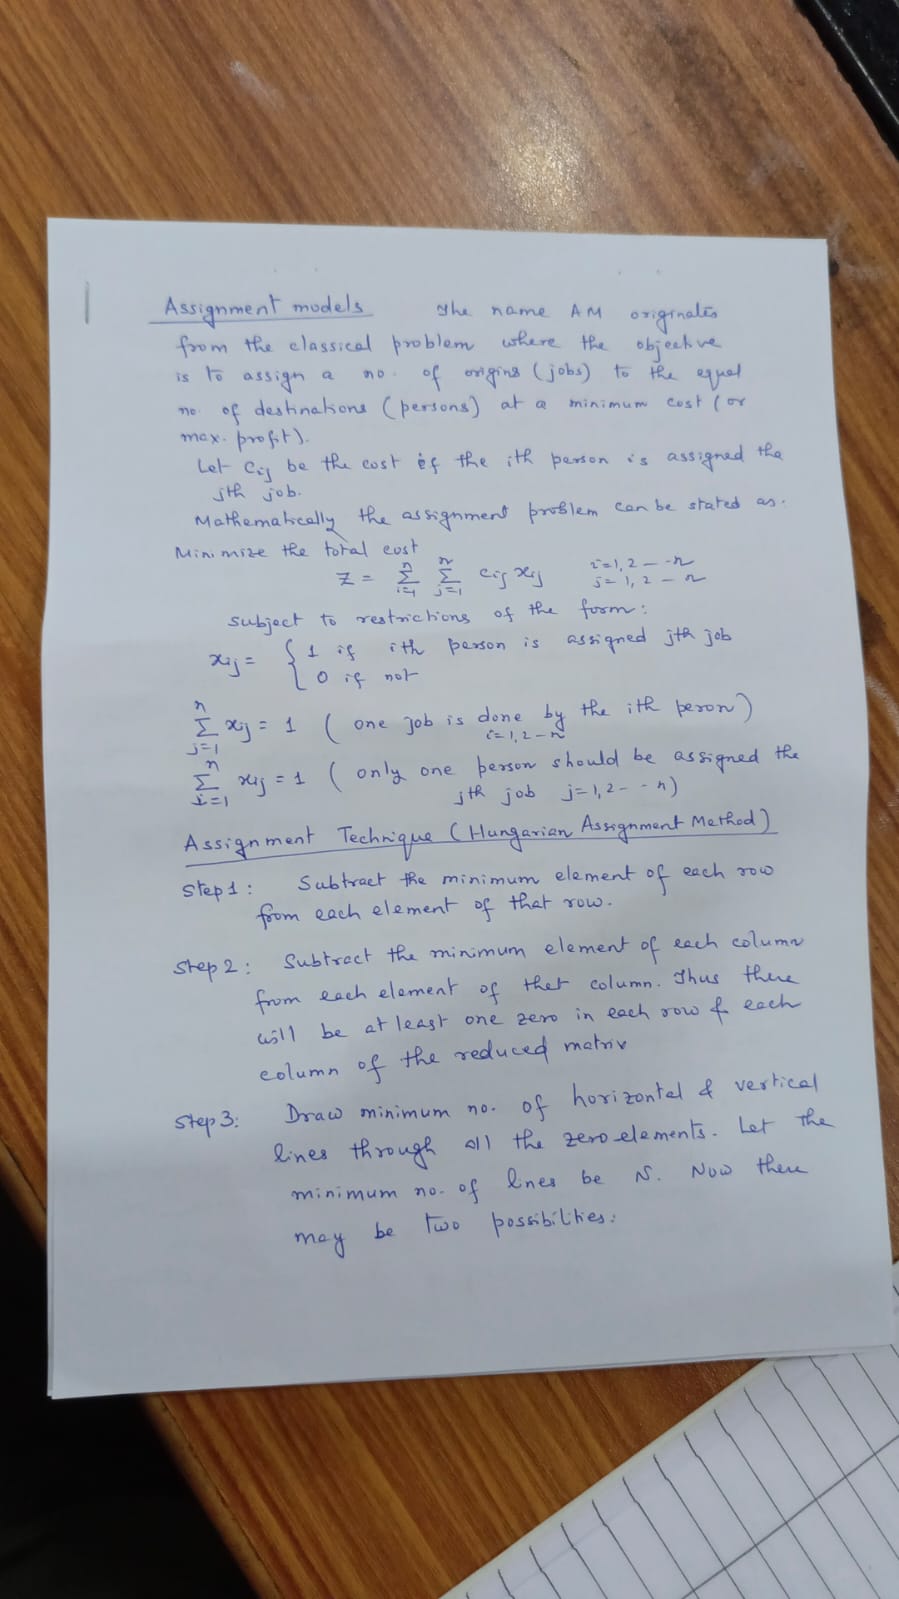 Assignment models The name AM originates
from the classical problem where the objective
is to assign a no. of origins (jobs) to the equal
no. of destinations (persons) at a minimum cost (or
max. profit).
Let Cij be the cost if the ith person is assigned the
jth job.
Mathematically the assignment problem can be stated as.
Minimize the total cost
Z = n∑i=1 n∑j=1 cij xij i=1,2 -- n
j=1,2 - n
subject to restrictions of the form:
xij = { 1 if ith person is assigned jth job
0 if not
n∑j=1 xij = 1 ( one job is done by the ith peron)
i=1,2 - n
n∑i=1 xij = 1 ( only one person should be assigned the
jth job j=1,2 - - n)
Assignment Technique (Hungarian Assignment Method)
Step 1: Subtract the minimum element of each row
from each element of that row.
Step 2: Subtract the minimum element of each column
from each element of that column. Thus there
will be at least one zero in each row & each
column of the reduced matrix
Step 3: Draw minimum no. of horizontal & vertical
lines through all the zero elements. Let the
minimum no. of lines be N. Now there
may be two possibilities: